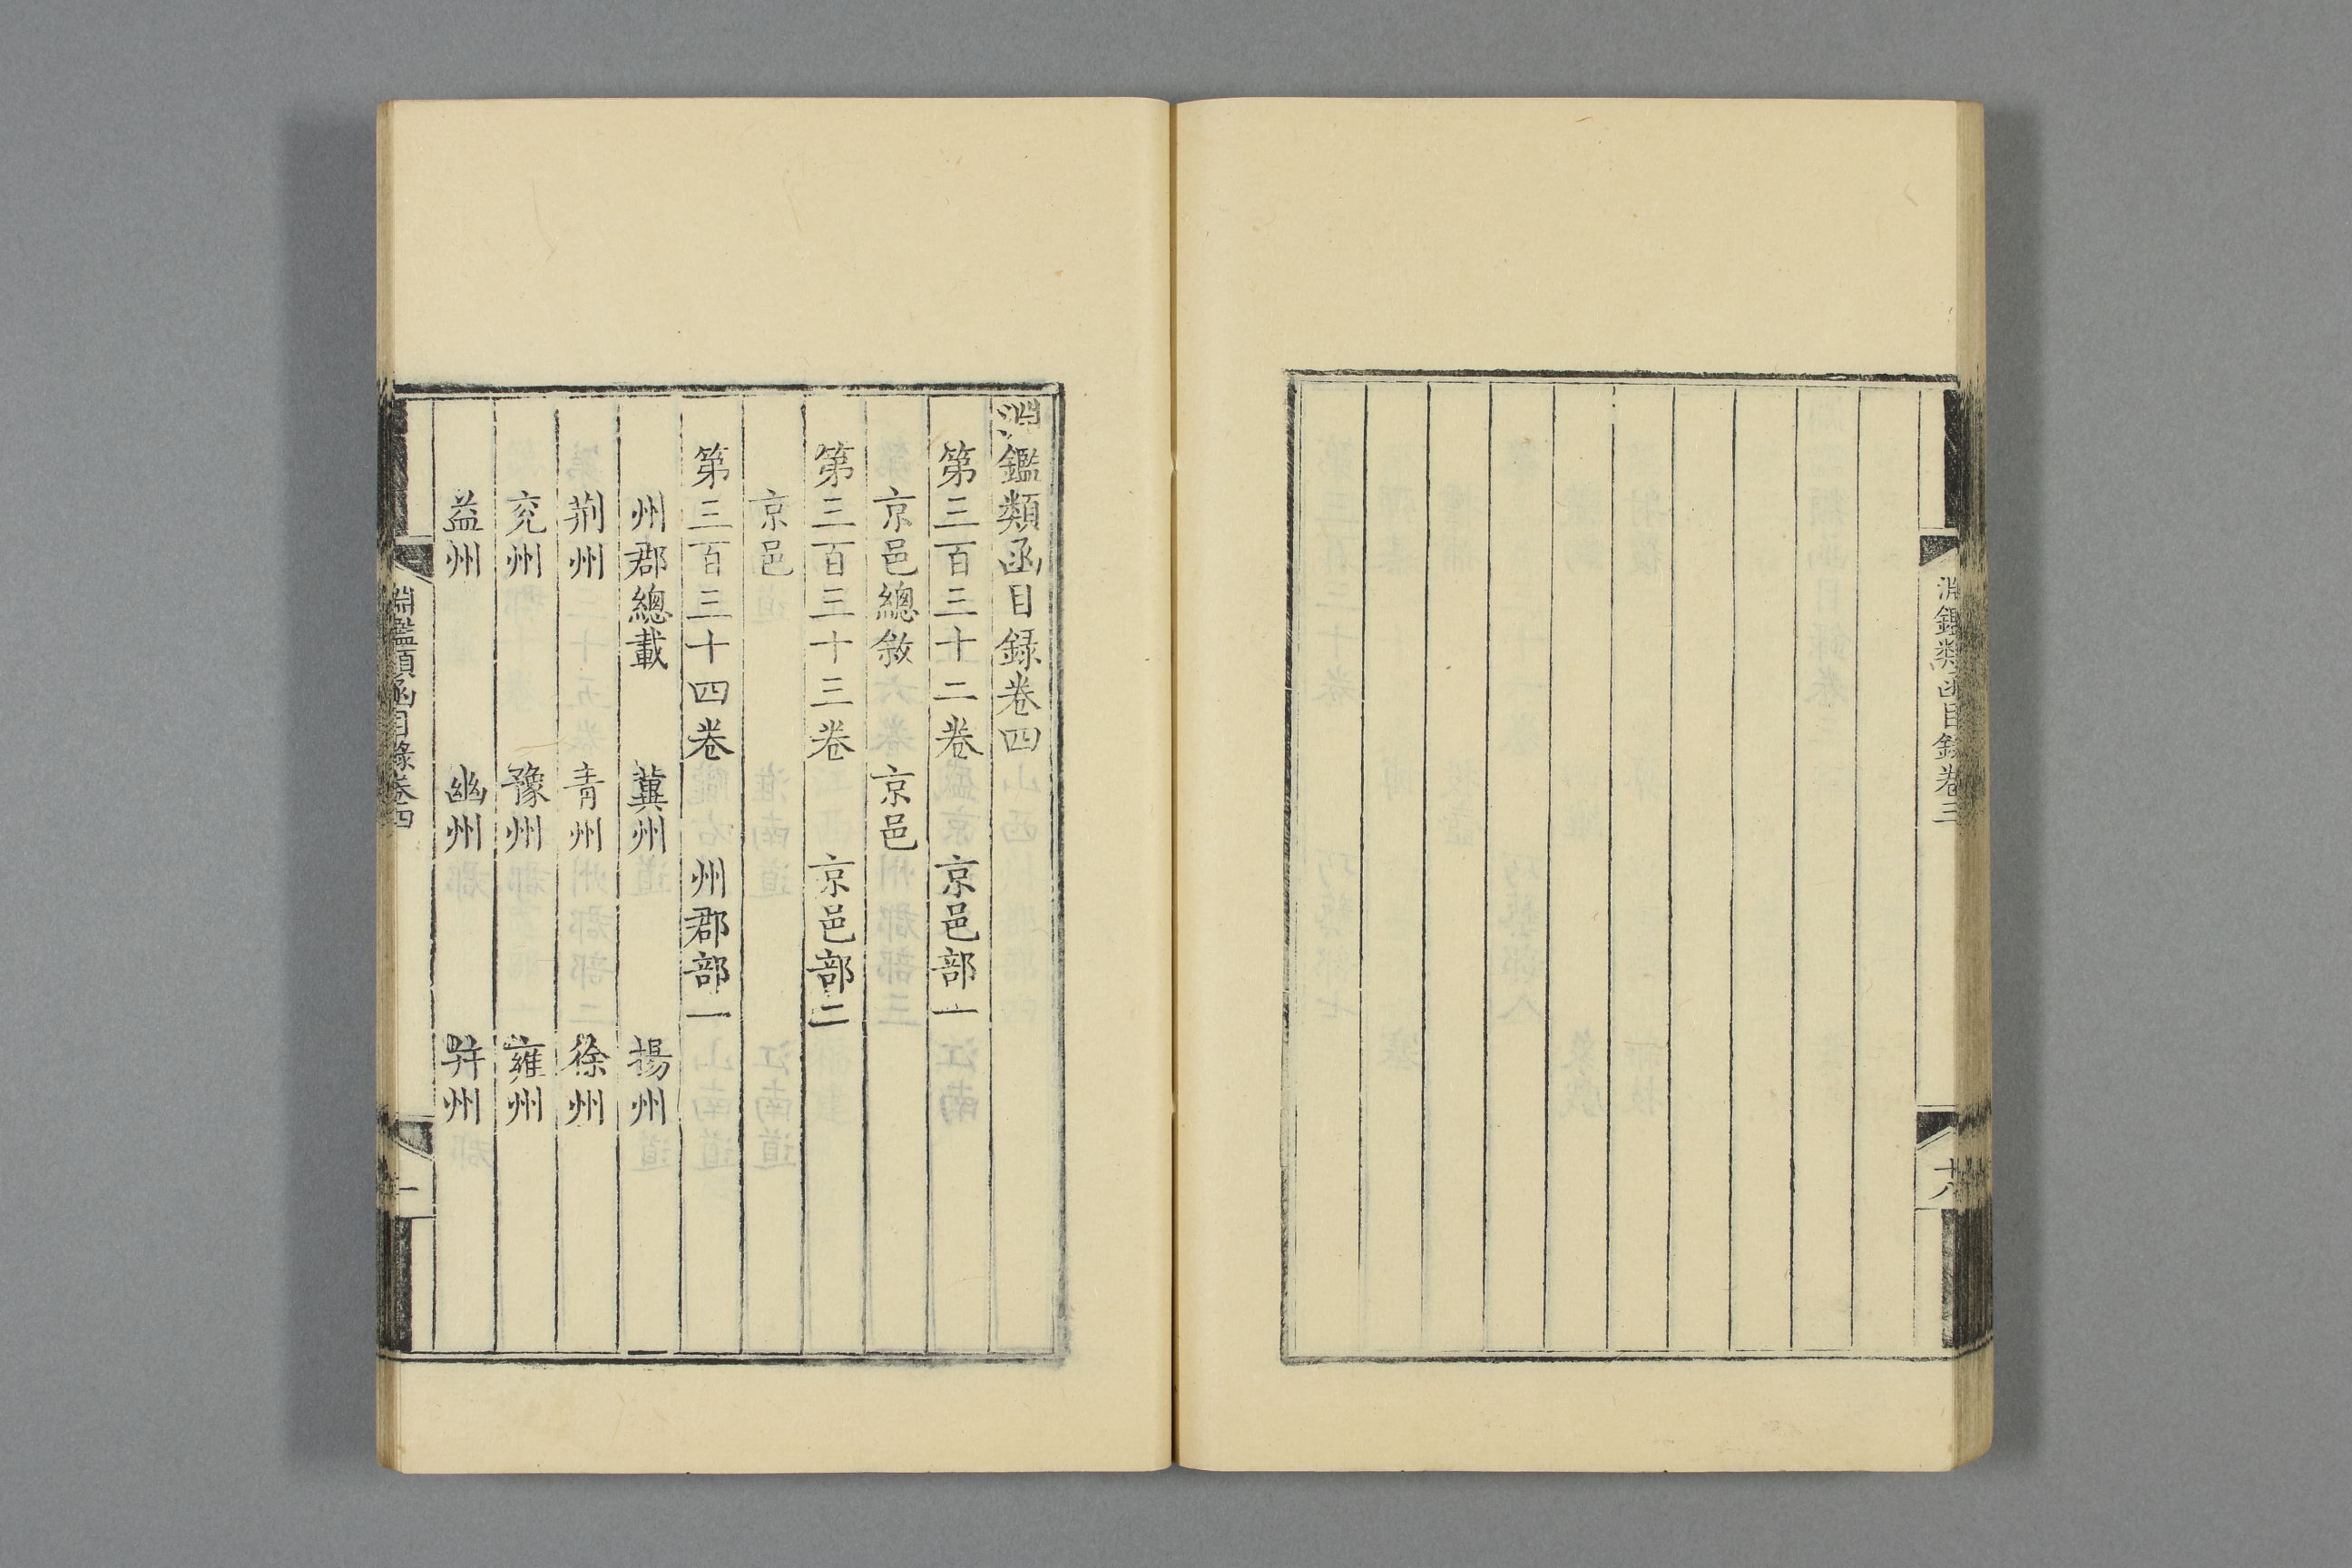 淵鑑類函目録卷三
十八
淵鑑類函目録卷四
第三百三十二卷 京邑部一
京邑總敘 京邑
第三百三十三卷 京邑部二
京邑
第三百三十四卷 州郡部一
州郡總載 冀州 揚州
荆州 青州 徐州
兖州 豫州 雍州
益州 幽州 并州
淵鑑類函目録卷四
一